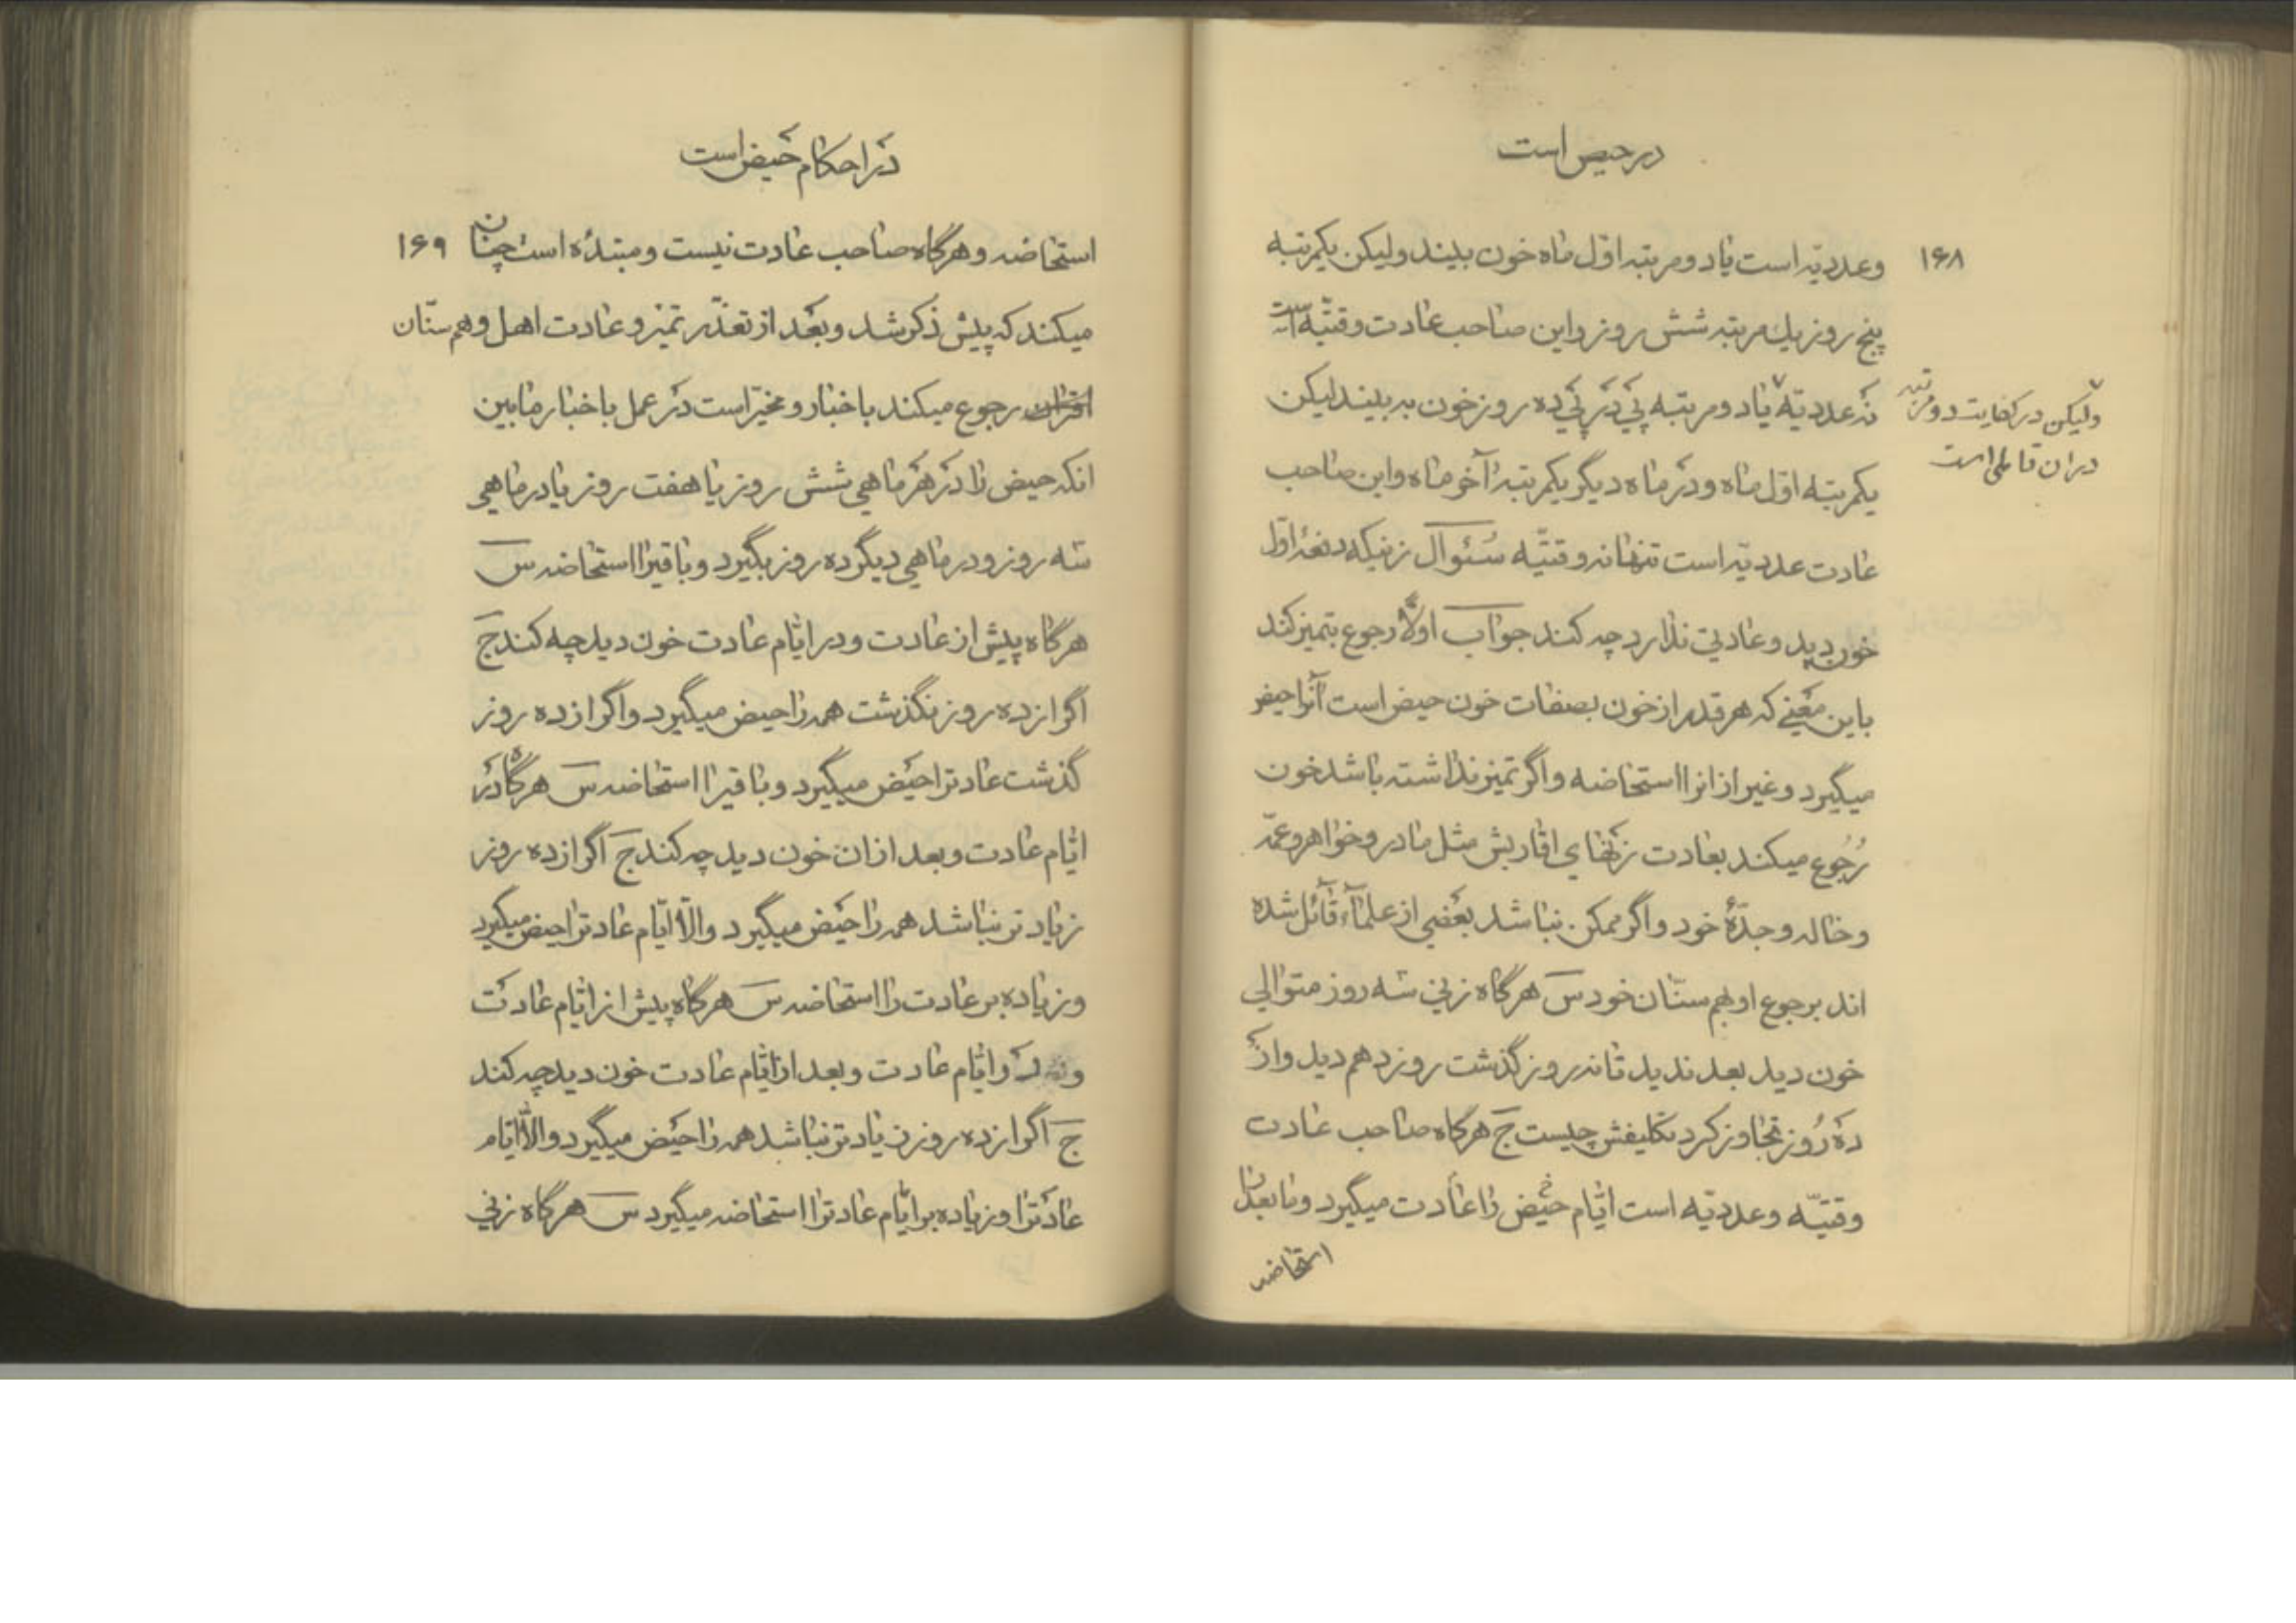 در حیض است
۱۶۸
وعددیّه است یا دو مرتبه اوّل ماه خون ببیند ولیکن یکمرتبه
پنج روز یك مرتبه شش روز و این صاحب عادت وقتیّه است
نه عددیّه یا دو مرتبه پی در پی ده روز خون به بیند لیکن
ولیکن در کفایت دو مرتبه
در ان تاملی است
یکمرتبه اوّل ماه و در ماه دیگر یکمرتبه آخر ماه و این صاحب
عادت عددیّه است تنها نه وقتیّه سئوال زنیکه دفعهٔ اوّل
خون دید و عادتی ندارد چه کند جواب اولاً رجوع بتمیز کند
باین معنی که هر قدر از خون بصفات خون حیض است آنرا حیض
میگیرد و غیر از انرا استحاضه و اگر تمیز نداشته باشد خون
رجوع میکند بعادت زنهای اقاربش مثل مادر و خواهر و عمّه
و خاله و جدّهٔ خود و اگر ممکن نباشد بعضی از علماء قائل شده
اند برجوع او بهم سنّان خود س هرگاه زنی سه روز متوالی
خون دید بعد ندید تا نه روز گذشت روز دهم دید و از
ده روز تجاوز کرد تکلیفش چیست ج هرگاه صاحب عادت
وقتیّه و عددیّه است ایّام حیض را عادت میگیرد و ما بعد را
استحاضه
در احکام حیض است
۱۶۹
استحاضه و هرگاه صاحب عادت نیست و مبتدئه است چنان
میکند که پیش ذکر شد و بعد از تعذّر تمیز و عادت اهل و هم سنّان
اقران رجوع میکند باخبار و مخیّر است در عمل باخبار مابین
انکه حیض را در هر ماهی شش روز یا هفت روز یا در ماهی
سه روز و در ماهی دیگر ده روز بگیرد و باقیرا استحاضه س
هرگاه پیش از عادت و در ایّام عادت خون دید چه کند ج
اگر از ده روز نگذشت همه را حیض میگیرد و اگر از ده روز
گذشت عادترا حیض میگیرد و باقیرا استحاضه س هرگاه در
ایّام عادت و بعد از ان خون دید چه کند ج اگر از ده روز
زیادتر نباشد همه را حیض میگیرد والّا ایّام عادترا حیض میگیرد
و زیاده بر عادت را استحاضه س هرگاه پیش از ایّام عادت
و ایّام عادت و بعد از ایّام عادت خون دید چه کند
ج اگر از ده روز زیادتر نباشد همه را حیض میگیرد والّا ایّام
عادترا و زیاده بر ایّام عادترا استحاضه میگیرد س هرگاه زنی